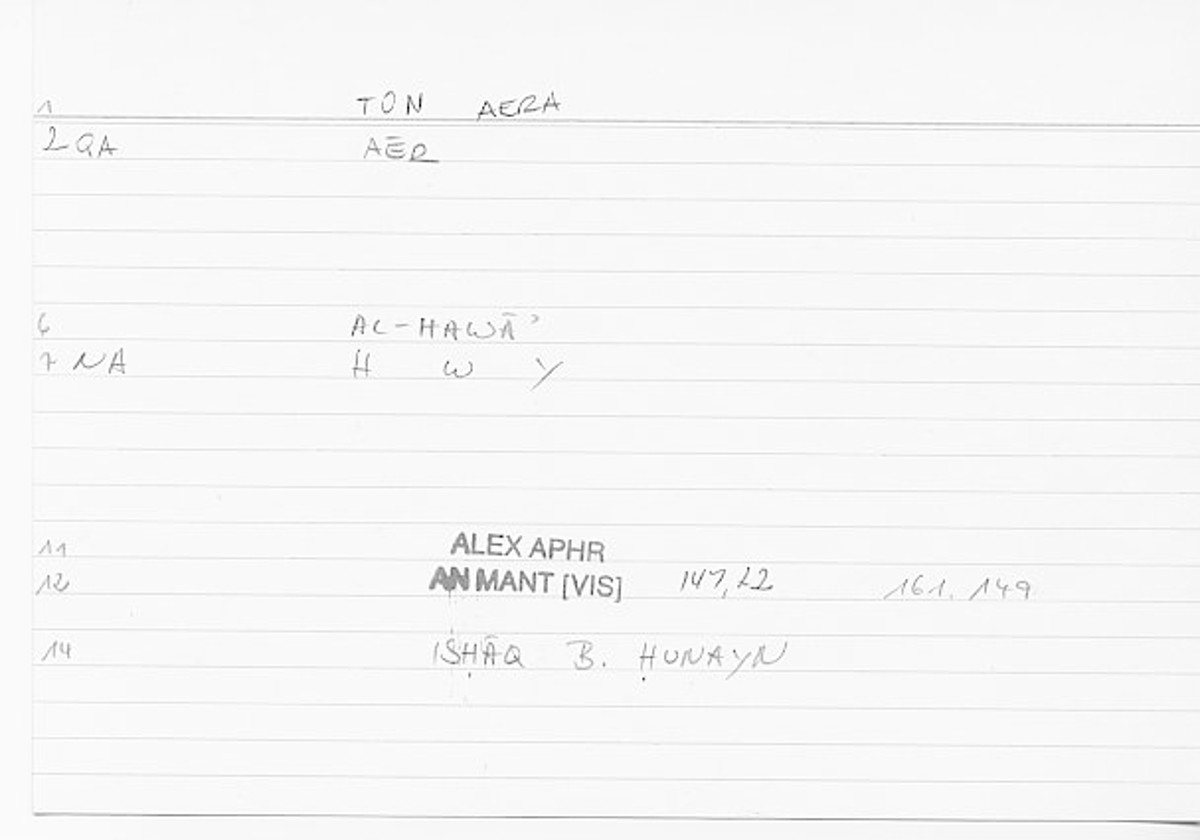 1 TON AERA
2 QA AĒR
6 AL-HAWĀʾ
7 NA H W Y
11 ALEX APHR
12 AN MANT [VIS] 147,22 161. 149
14 ISḤĀQ B. ḤUNAYN